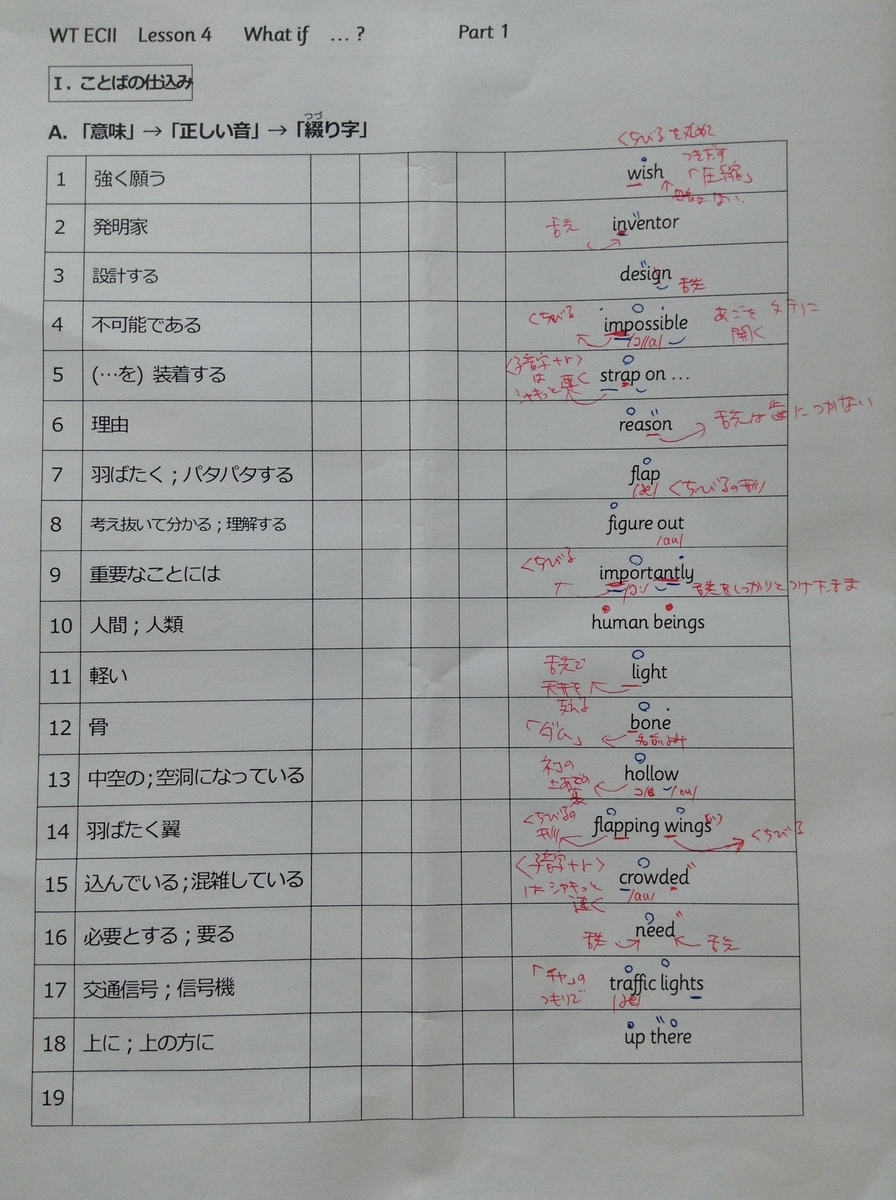 WT ECII Lesson 4 What if … ? Part 1
I. ことばの仕込み
A. 「意味」→「正しい音」→「綴り字」
つづ
くちびるを丸めて
1 強く願う wish つき下す「圧縮」
2 発明家 舌先 inventor
3 設計する design 舌先
4 不可能である くちびる impossible あごをタテに開く
/ɔ//a/
5 (…を) 装着する 〈子音字+r〉はシャキっと速く strap on …
6 理由 reason 舌先は歯につかない
7 羽ばたく ; パタパタする flap
/æ/ くちびるの形
8 考え抜いて分かる ; 理解する figure out
/au/
9 重要なことには くちびる importantly 舌先をしっかりとつけたまま
/ɔː/
10 人間 ; 人類 human beings
11 軽い 舌先で天井を light
12 骨 支える「ダム」 bone
名前よみ
13 中空の ; 空洞になっている ネコの hollow
/ou/
14 羽ばたく翼 くちびるの形 flapping wings くちびる
15 込んでいる ; 混雑している 〈子音字+r〉はシャキっと速く crowded
/au/
16 必要とする ; 要る 舌先 need 舌先
17 交通信号 ; 信号機 「チャ」のつもりで traffic lights
/æ/
18 上に ; 上の方に up there
19